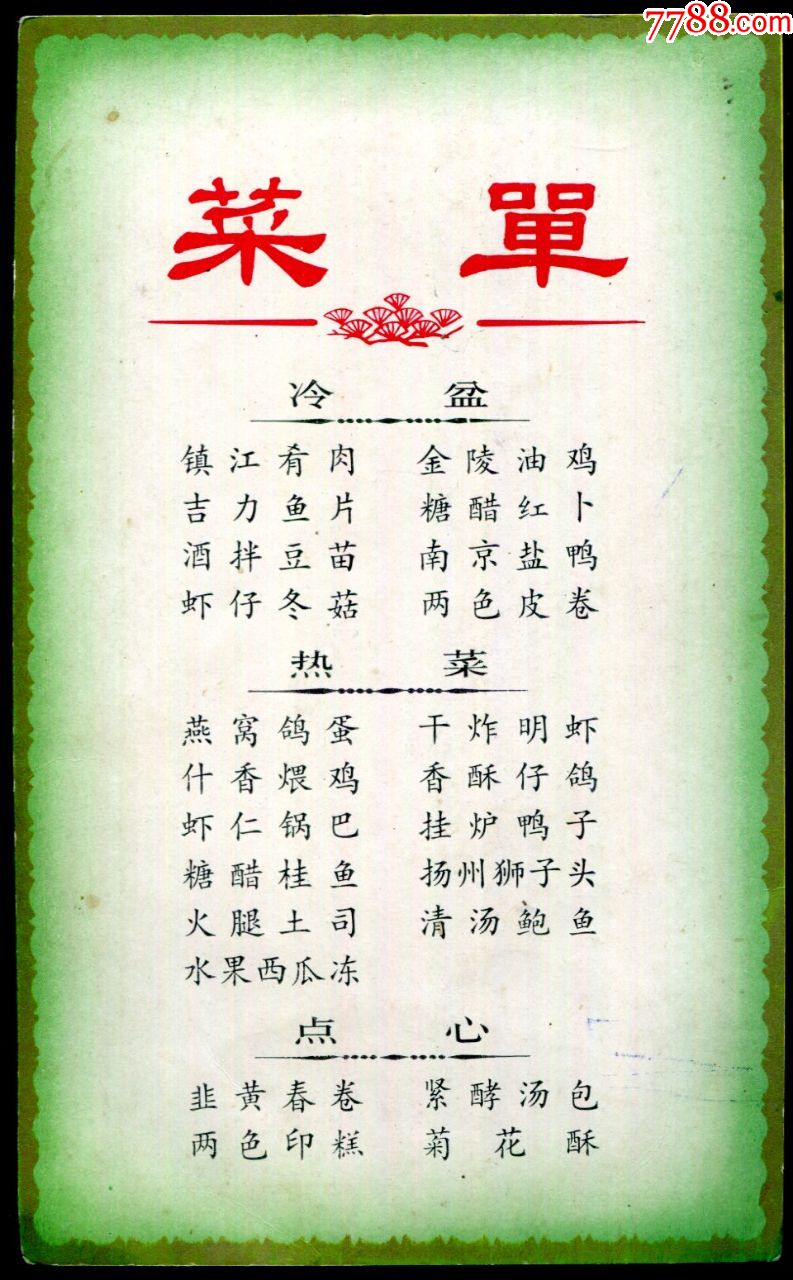 7788.com
菜單
冷盆
镇江肴肉 金陵油鸡
吉力鱼片 糖醋红卜
酒拌豆苗 南京盐鸭
虾仔冬菇 两色皮卷
热菜
燕窝鸽蛋 干炸明虾
什香煨鸡 香酥仔鸽
虾仁锅巴 挂炉鸭子
糖醋桂鱼 扬州狮子头
火腿土司 清汤鲍鱼
水果西瓜冻
点心
韭黄春卷 紧酵汤包
两色印糕 菊花酥